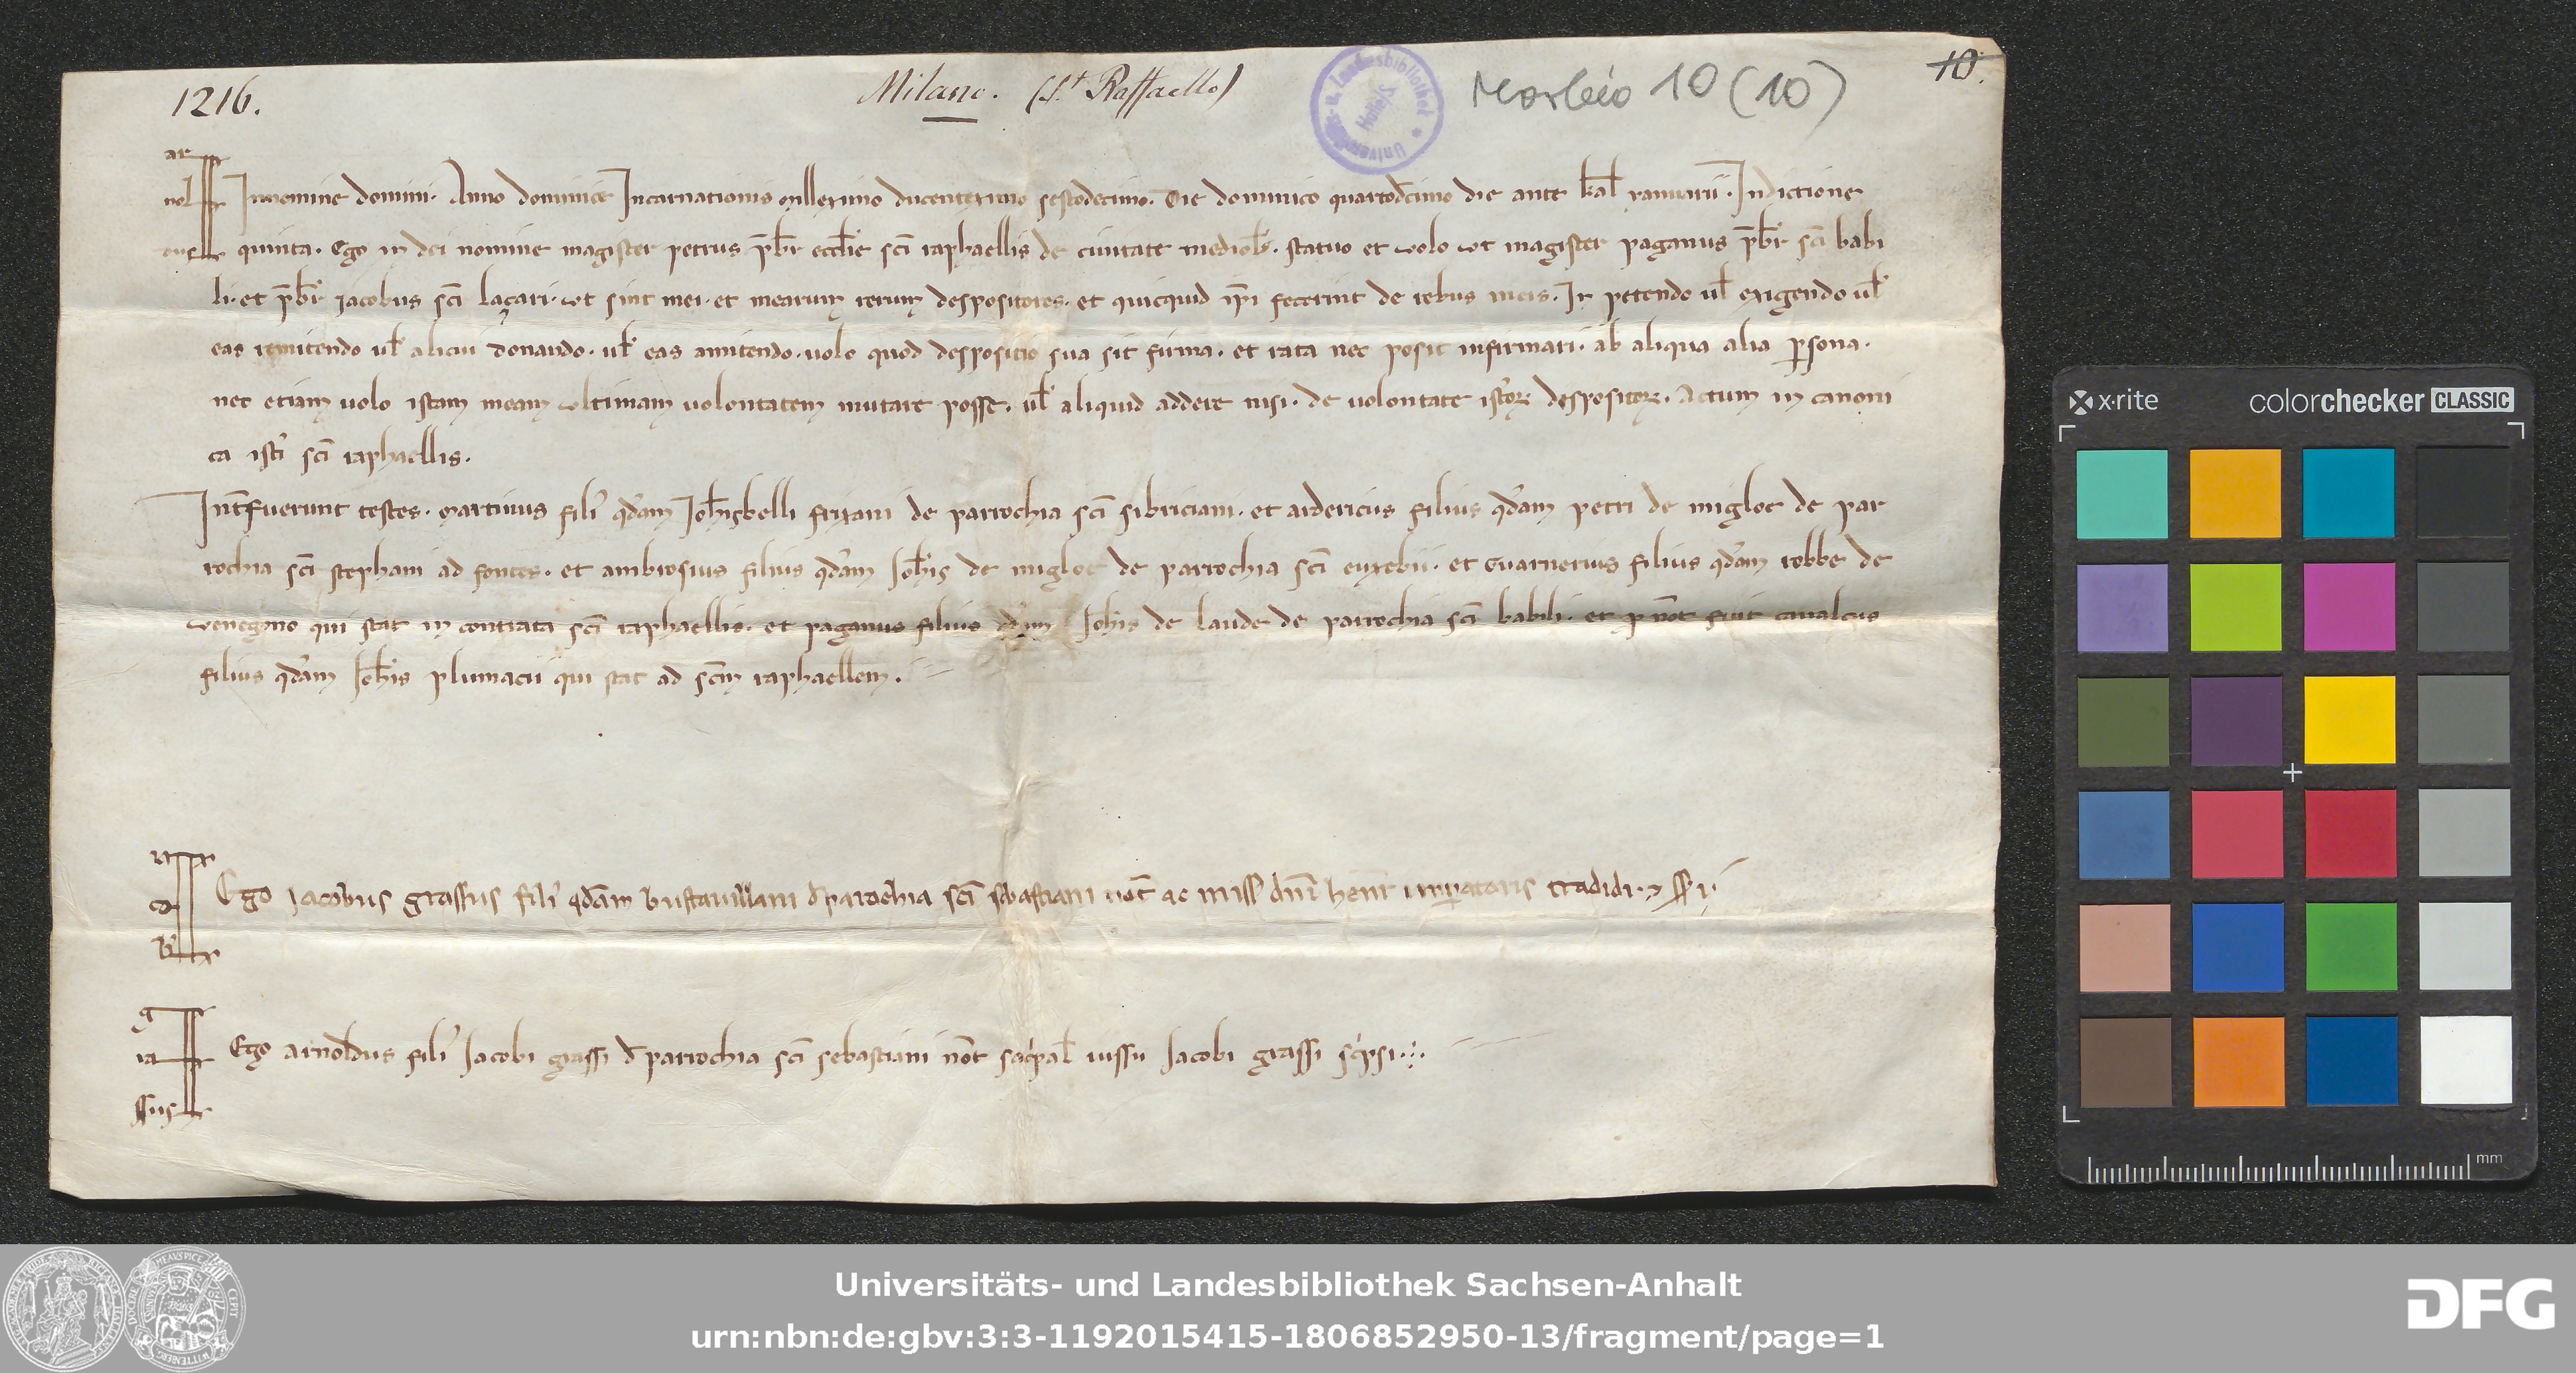 1216.
Milano. (S.t Raffaello)
Morbio 10 (10)
10.
Univers.- u. Landesbibliothek Halle/S
ar
nol
dus
In nomine domini. Anno dominice Incarnationis millesimo ducentesimo sestodecimo. Die dominico quartodecimo die ante kal̄ ianuarii. Indictione
quinta. Ego in dei nomine magister petrus p̄br eccl̄ie sc̄i raphaellis de ciuitate mediol̄. statuo et uolo ut magister paganus p̄br sc̄i babi
li. et p̄br iacobus sc̄i laçari. ut sint mei. et mearum rerum despositores. et quicquid ip̄i fecerint de rebus meis. In petendo ul̄ exigendo ul̄
eas remitendo ul̄ alicui donando. ul̄ eas amitendo. uolo quod despositio sua sit firma. et rata nec posit infirmari. ab aliqua alia ꝑsona.
nec etiam uolo istam meam ultimam uolontatem mutare posse. ul̄ aliquid addere nisi. de uolontate istoꝝ despositoꝝ. Actum in canoni
ca isti sc̄i raphaellis.
Int̄fuerunt testes. martinus fili̓ qd̄am Joh̄isbelli frixiani de parrochia sc̄i sibriciani. et ardericus filius qd̄am petri de migloe de par
rochia sc̄i stephani ad fontes. et ambrosius filius qd̄am Joh̄is de migloe de parrochia sc̄i euxebii. et Guarnerius filius qd̄am robbe de
uenegono qui stat in contrata sc̄i raphaellis. et paganus filius qd̄am Joh̄is de laude de parrochia sc̄i babili. et ꝓ not̄ fuit caualcus
filius qd̄am Joh̄is plumacii qui stat ad sc̄m raphaellem.
ia
co
b̓
Ego Jacobus grassus fili̓ qd̄am bustauillani d̄ parochia sc̄i sebastiani not̄ ac miss̄ dn̄i henr̄ imꝑatoris tradidi. ⁊ ss̄.
g
ra
ssus
Ego arnoldus fili̓ Jacobi grassi d̄ parrochia sc̄i sebastiani not̄ sac̓pal̄ iussu Jacobi grassi sc̓psi.
x-rite colorchecker CLASSIC
mm
Universitäts- und Landesbibliothek Sachsen-Anhalt
urn:nbn:de:gbv:3:3-1192015415-1806852950-13/fragment/page=1
DFG